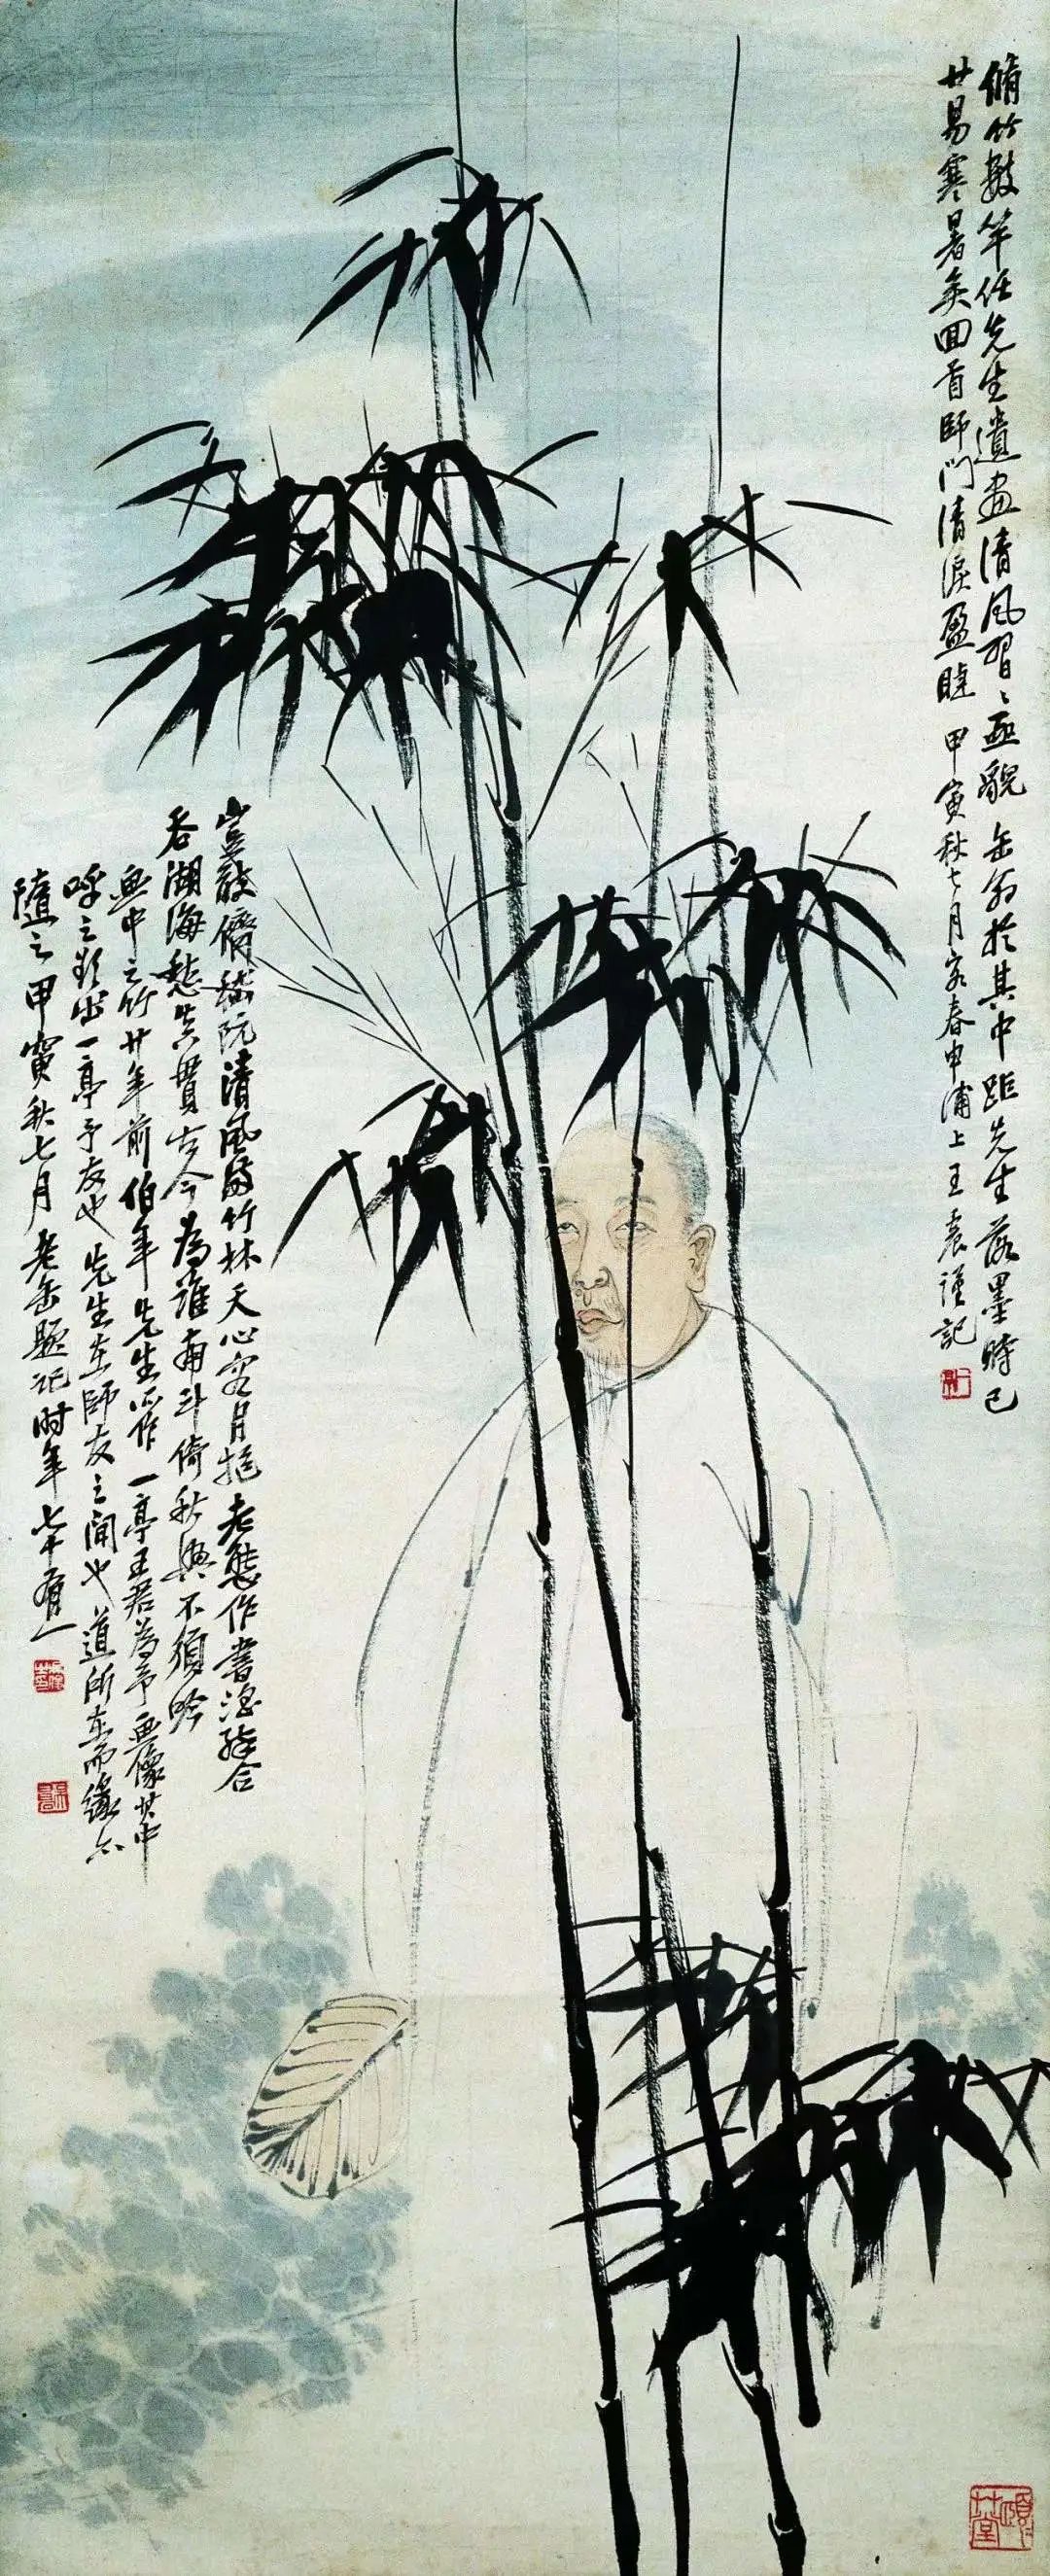 脩竹數竿任先生遺畫清風習習亟貌缶翁於其中距先生落墨時已
廿易寒暑矣回首師門清淚盈睫 甲寅秋七月客春申浦上王震謹記
豈敢儕嵇阮清風滿竹林天心容月抱老態作書淫 合
吞湖海愁真貫古今為誰南斗倚秋興不須吟
畫中之竹廿年前伯年先生所作一亭王君為予畫像其中
呼之欲出一亭予友也先生在師友之間也道所在而緣亦
隨之甲寅秋七月老缶題記時年七十有一